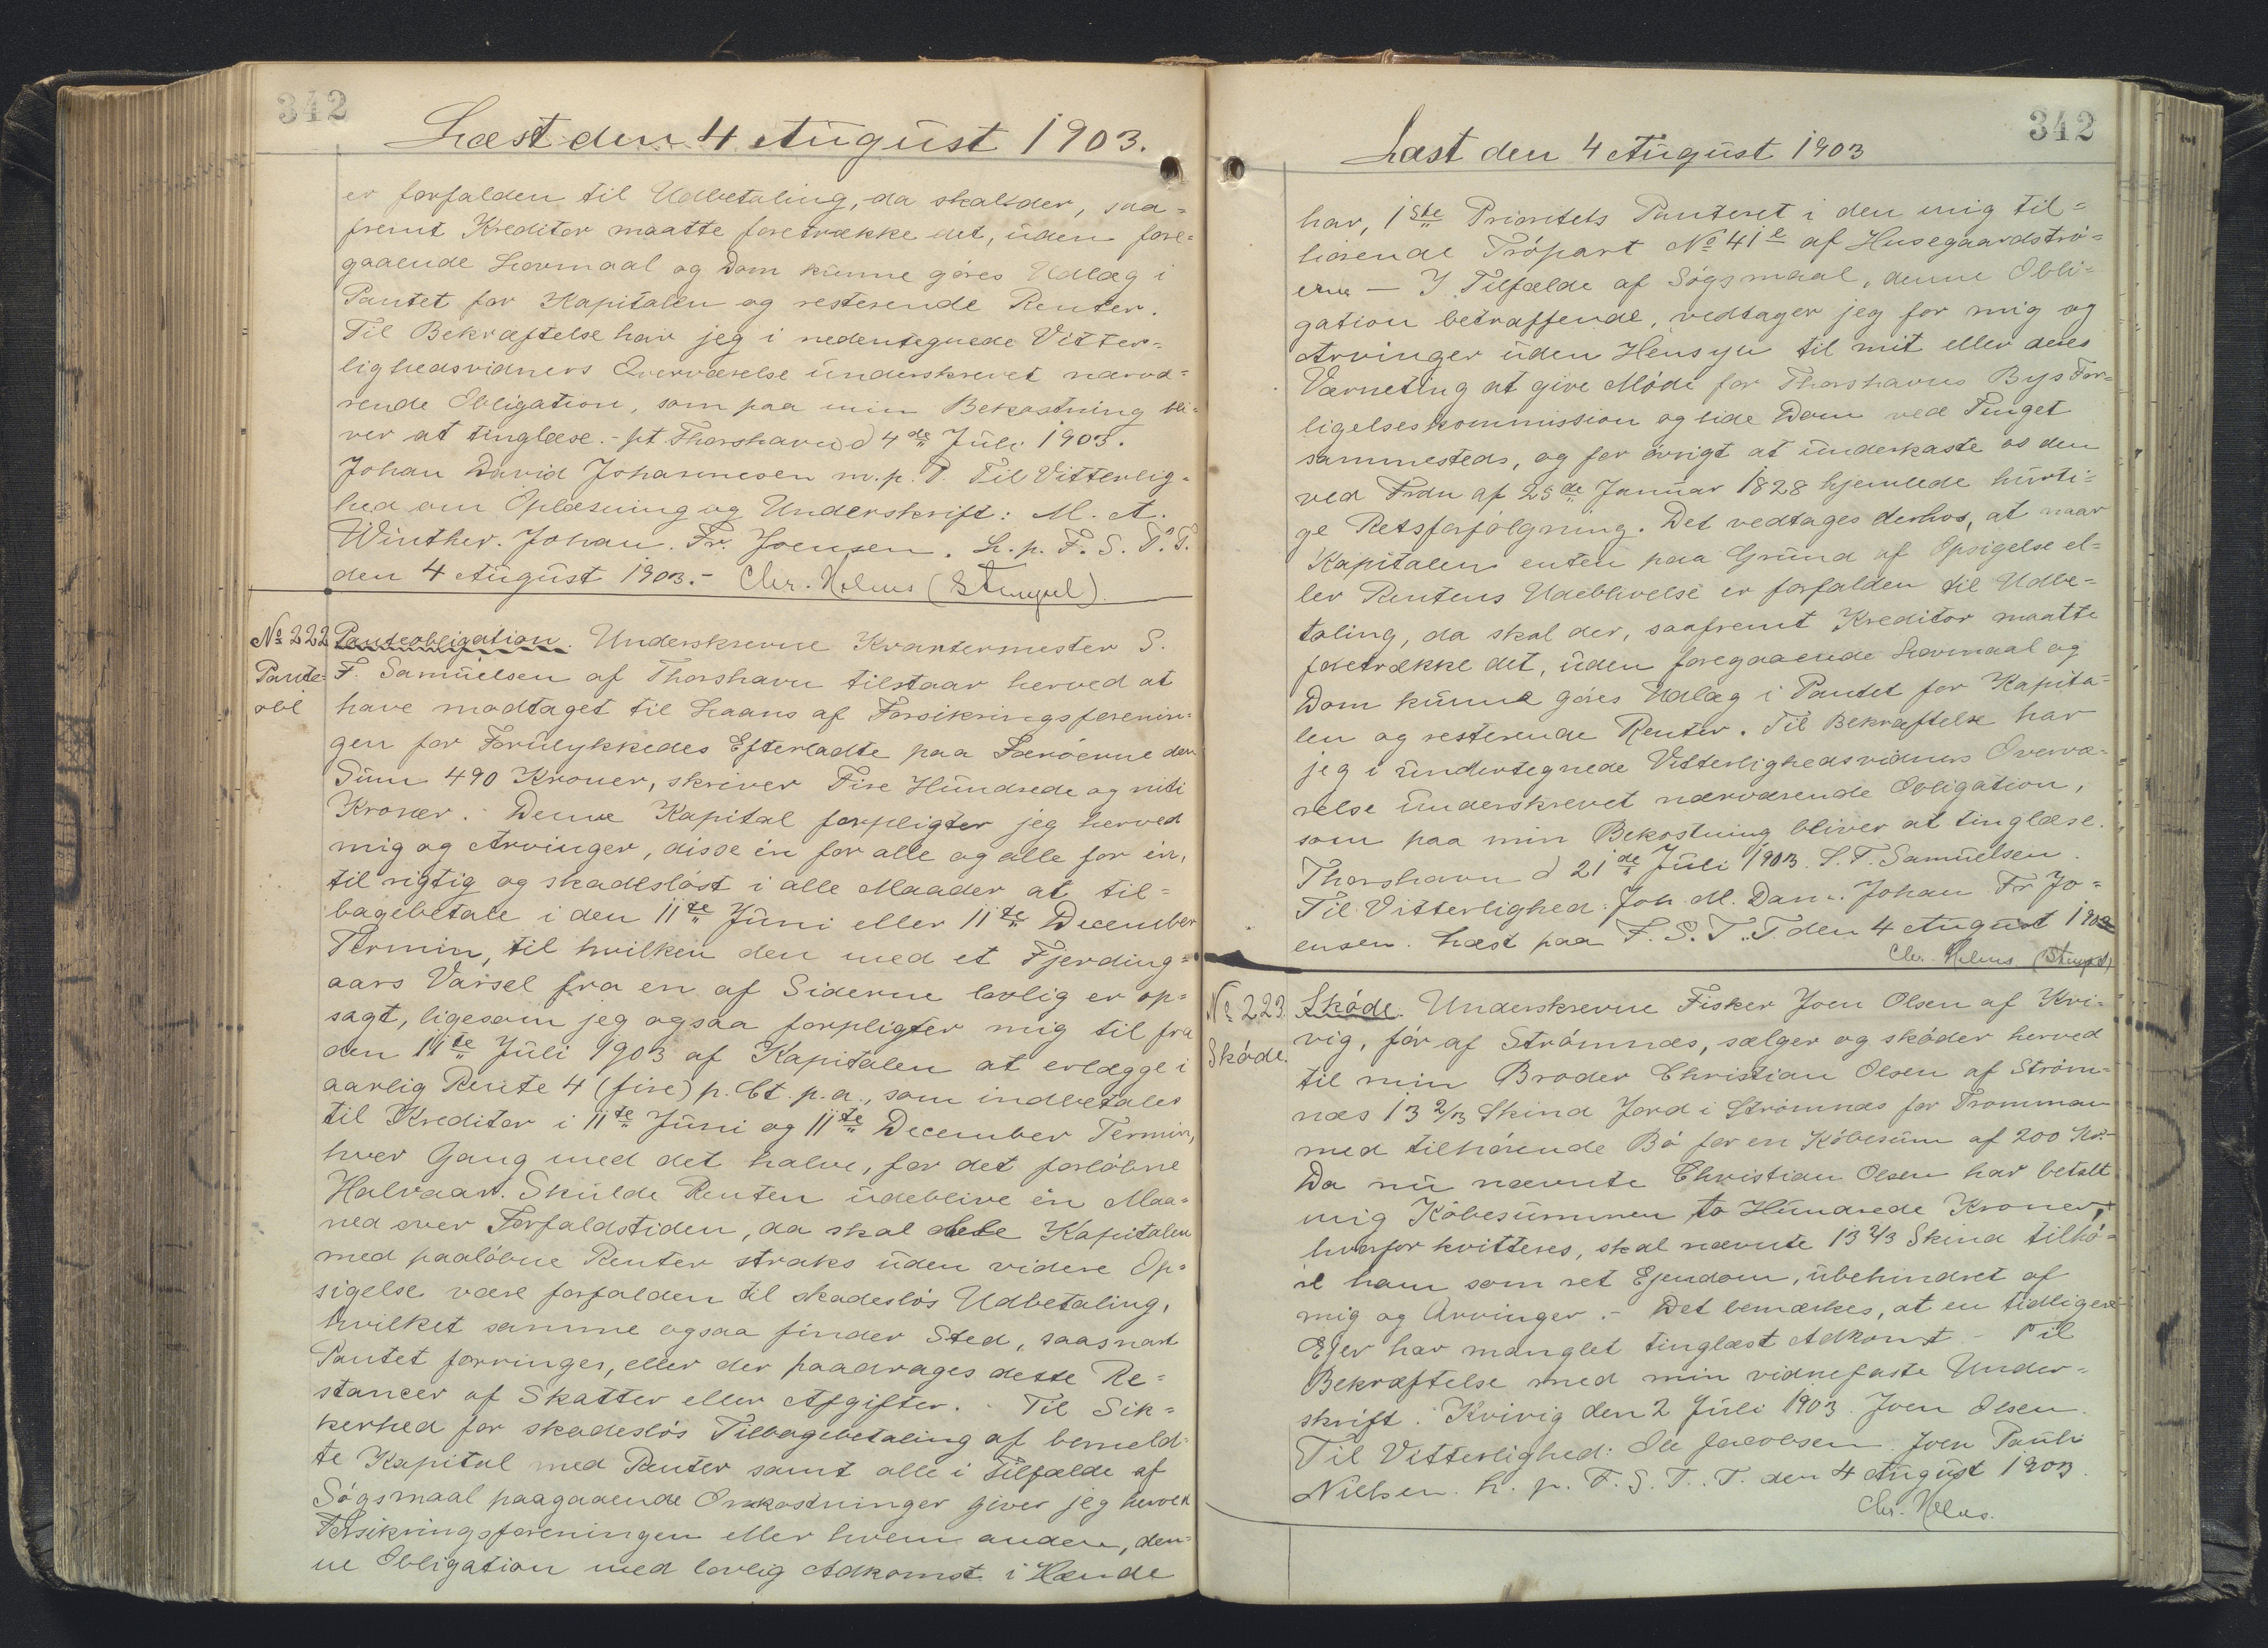 342
Læst den 4 August 1903.
er forfalden til Udbetaling, da skal der, saa=
fremt Kreditor maatte foretrække det, uden fore=
gaaende Lovmaal og Dom kunne göres Udlæg i
Pantet for Kapitalen og resterende Renter.
Til Bekræftelse har jeg i nedentegnede Vitter=
lighedsvidners Overværelse underskrevet nærvæ=
rende Obligation, som paa min Bekostning bli=
ver at tinglæse. - pt Thorshavn d 4de Juli 1903.
Johan David Johannesen m. p. P. Til Vitterlig=
hed om Oplæsning og Underskrift: M. A.
Winther. Johan. Fr. Joensen. L. p. F. S. T. T.
den 4 August 1903.- Chr. Holms (Stempel).
No 222 Panteobligation. Underskrevne Kvartermester S.
Pante= F. Samuelsen af Thorshavn tilstaar herved at
obl have modtaget til Laans af Forsikringsforenin=
gen for Forulykkedes Efterladte paa Færöerne den
Sum 490 Kroner, skriver Fire Hundrede og niti
Kroner. Denne Kapital forpligter jeg herved
mig og Arvinger, disse én for alle og alle for én,
til rigtig og skadeslöst i alle Maader at til=
bagebetale i den 11te Juni eller 11te December
Termin, til hvilken den med et Fjerding=
aars Varsel fra en af Siderne lovlig er op=
sagt, ligesom jeg ogsaa forpligter mig til fra
den 11te Juli 1903 af Kapitalen at erlægge i
aarlig Rente 4 (fire) p. Ct. p. a., som indbetales
til Kreditor i 11te Juni og 11te December Termin,
hver Gang med det halve, for det forlöbne
Halvaar. Skulde Renten udeblive én Maa=
ned over Forfaldstiden, da skal hele Kapitalen
med paalöbne Renter straks uden videre Op=
sigelse være forfalden til skadeslös Udbetaling,
hvilket samme ogsaa finder Sted, saasnart
Pantet forringes, eller der paadrages dette Re=
stancer af Skatter eller Afgifter. - Til Sik=
kerhed for skadeslös Tilbagebetaling af bemeld=
te Kapital med Renter samt alle i Tilfælde af
Sögsmaal paagaaende Omkostninger giver jeg herved
Forsikringsforeningen eller hvem anden, den=
ne Obligation med lovlig Adkomst i Hænde
342
Læst den 4 August 1903
har, 1ste Prioritets Panteret i den mig til=
hörende Tröpart No 41e af Husegaardströ=
erne - I Tilfælde af Sögsmaal, denne Obli=
gation betræffende, vedtager jeg for mig og
Arvinger uden Hensyn til mit eller deres
Værneting at give Möde for Thorshavns Bys For=
ligelseskommission og lide Dom ved Tinget
sammesteds, og for övrigt at underkaste os den
ved Frdn af 25de Januar 1828 hjemlede hurti=
ge Retsforfölgning. Det vedtages derhos, at naar
Kapitalen enten paa Grund af Opsigelse el=
ler Rentens Udeblivelse er forfalden til Udbe=
taling, da skal der, saafremt Kreditor maatte
foretrække det, uden foregaaende Lovmaal og
Dom kunne göres Udlæg i Pantet for Kapita=
len og resterende Renter. Til Bekræftelse har
jeg i undertegnede Vitterlighedsvidners Overvæ=
relse underskrevet nærværende Obligation,
som paa min Bekostning bliver at tinglæse.
Thorshavn d 21de Juli 1903. S. F. Samuelsen.
Til Vitterlighed: Joh. M. Dam. Johan Fr Jo=
ensen. Læst paa F. S. T. T. den 4 August 1903
Chr. Holms (Stempel)
No 223. Sköde. Underskrevne Fisker Joen Olsen af Kvi=
Sköde. vig, för af Strömnæs, sælger og sköder herved
til min Broder Christian Olsen af Ström=
næs 13 2/3 Skind Jord i Strömnæs for Tromman
med tilhörende Bö for en Köbesum af 200 Kr.-
Da nu nævnte Christian Olsen har betalt
mig Köbesummen to Hundrede Kroner,
hvorfor kvitteres, skal nævnte 13 2/3 Skind tilhö=
re ham som ret Ejendom, ubehindret af
mig og Arvinger. - Det bemærkes, at en tidligere
Ejer har manglet tinglæst Adkomst - Til
Bekræftelse med min vidnefaste Under=
skrift. Kvivig den 2 Juli 1903. Joen Olsen.
Til Vitterlighed: Ole Jacobsen. Joen Pauli
Nielsen. L. p. F. S. T. T. den 4 August 1903.
Chr. Holms.